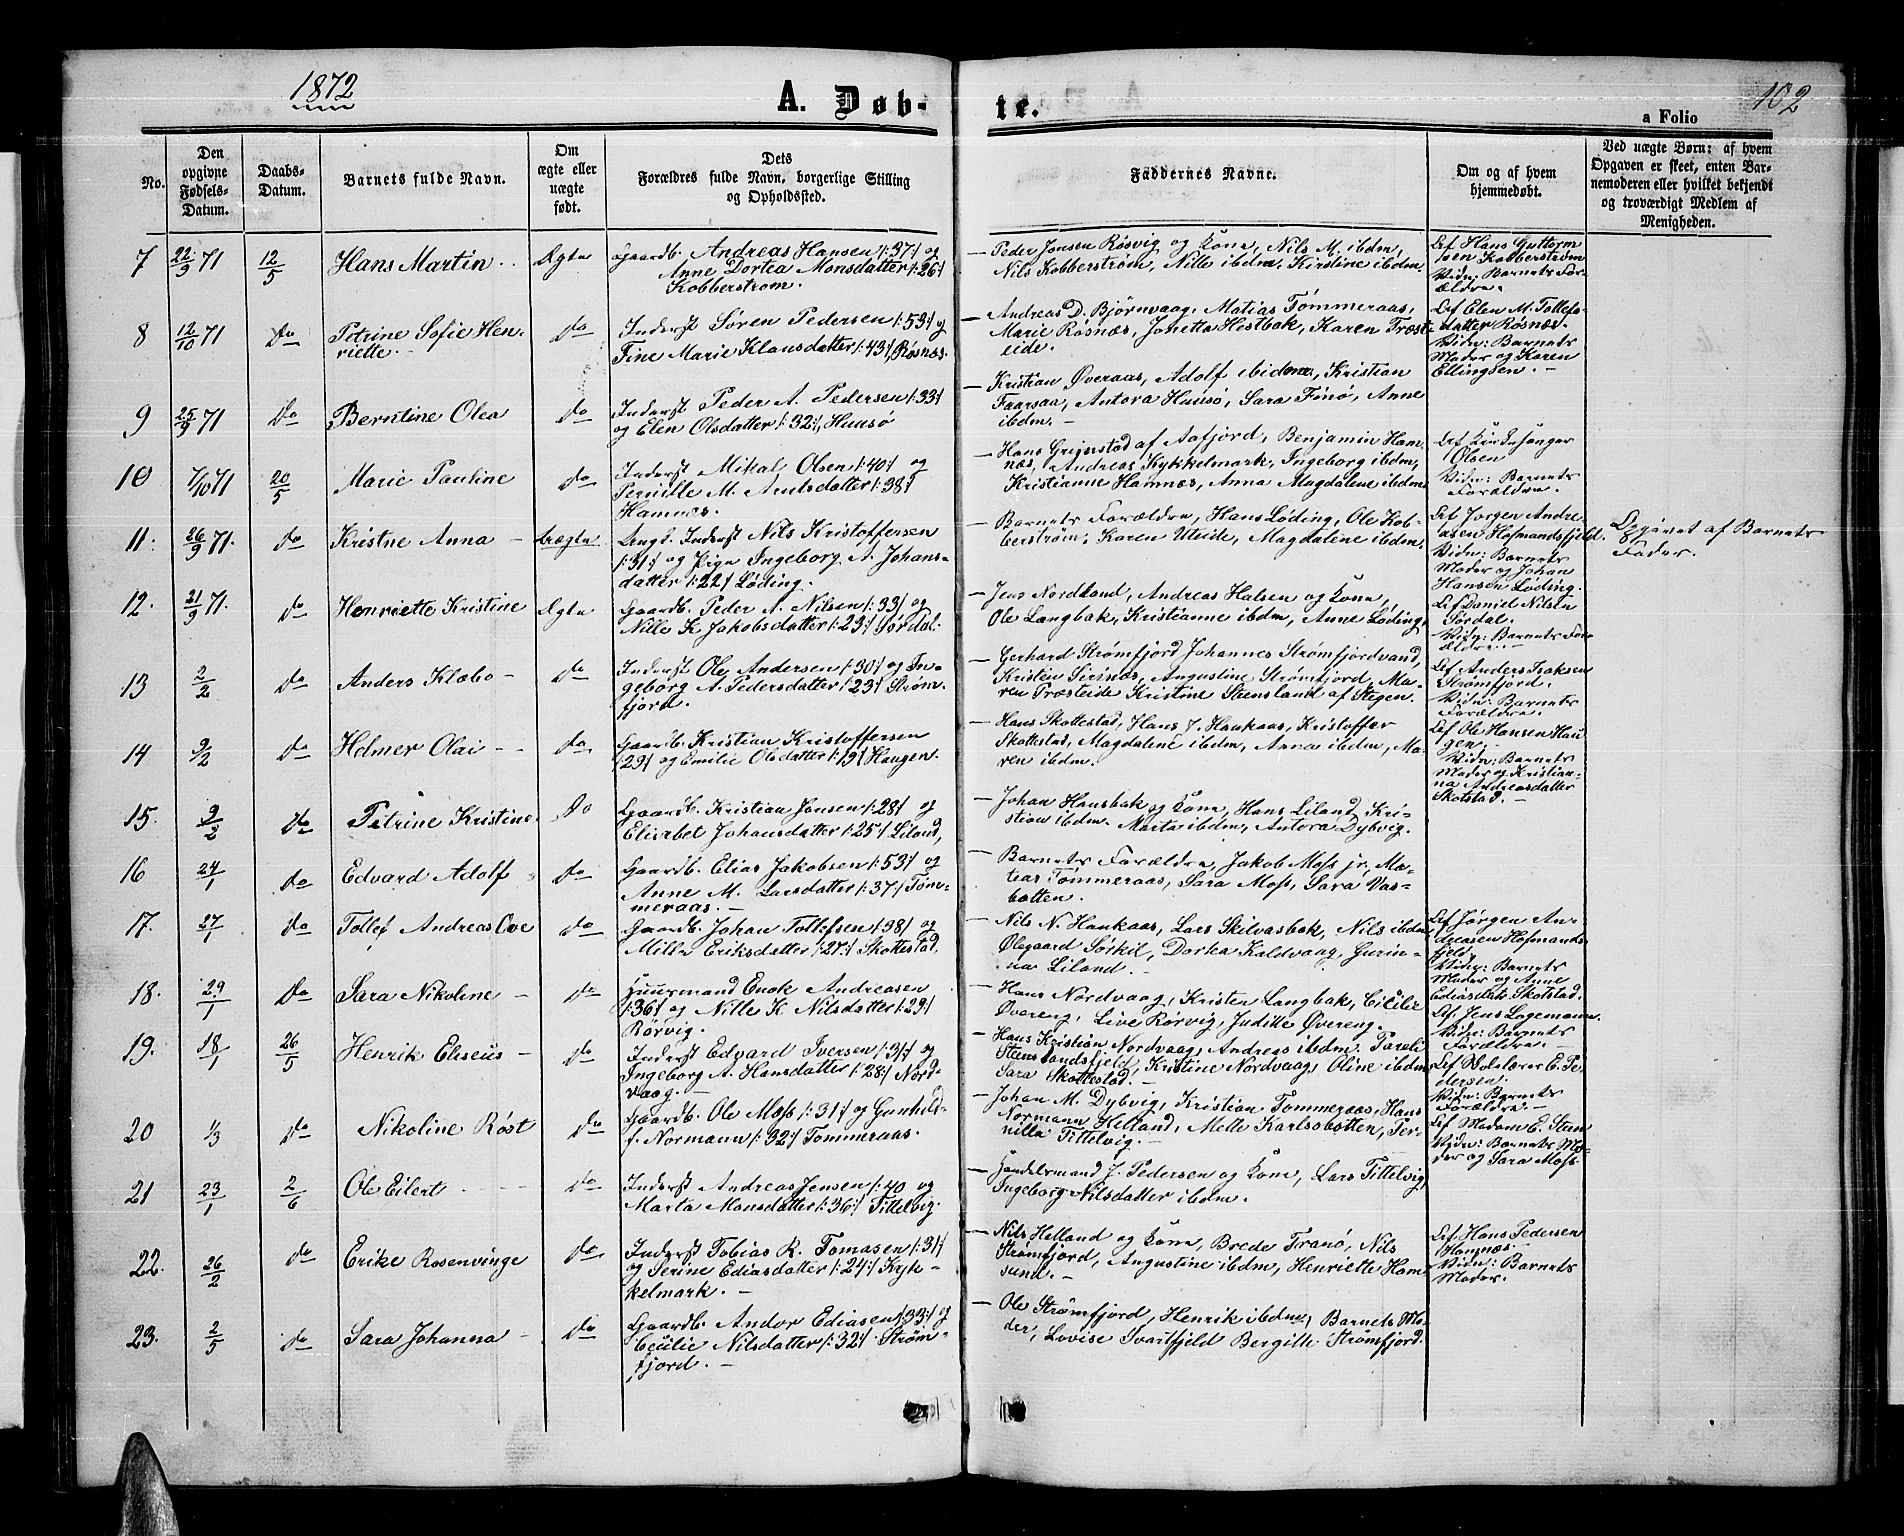 1872
A. Døb-
te.
102
a Folio
No.
Den
opgivne
Fødsels-
Datum.
Daabs-
Datum.
Barnets fulde Navn.
Om
ægte eller
uægte
født.
Dets
Forældres fulde Navn, borgerlige Stilling
og Opholdssted.
Faddernes Navne.
Om og af hvem
hjemmedøbt.
Ved uægte Børn: af hvem
Opgaven er skeet, enten Bar-
nemoderen eller hvilket bekjendt
og troværdigt Medlem af
Menigheden.
7 22/9 71 12/5 Hans Martin Ægte
Gaardb. Andreas Hansen /:37:/ og
Anne Dortea Monsdatter /:26:/
Kobberstrom.
— Peder Jensen Røsvig og Kone, Nils M. ibdm,
Nils Kobberstrøm, Nille ibdm. Kirstine ibdm.
Def Hans Guttorm
sen Kobberstrøm
Vidn: Barnets For-
ældre.
8 12/10 71 Do Petrine Sofie Hen-
riette. Do
Inderst Søren Pedersen /:53:/ og
Fine Marie Klausdatter /:43:/ Røsnæs.
— Andreas D. Bjørnvaag, Matias Tømmeraas,
Marie Røsnæs, Jonetta Hestbak, Karen Præst-
eide.
Def Elen M. Tollefs-
datter Røsnæs.
Vidn: Barnets
Moder og Karen
Ellingsen.
9 25/9 71 Do Berntine Olea Do
Inderst Peder A. Pedersen /:33:/
og Elen Olsdatter /:32:/, Husøsø
— Kristian Øveraas, Adolf ibidm, Kristian
Faarsaa, Antora Husø, Sara Finø, Anne
ibdm.
10 7/10 71 20/5 Marie Pauline Do
Inderst Mikal Olsen /:40:/ og
Pernille M. Arntsdatter /:38:/
Hamnes.
— Hans Grijnstad af Aafjord, Benjamin Ham-
næs, Andreas Kykkelmark, Ingeborg ibdm,
Kristianne Hamnæs, Anna Magdalene ibdm.
Def Kirkesanger
Olsen
Vidn: Barnets
Forældre.
11. 26/9 71. Do Kristne Anna Uægte
Ungk. Inderst Nils Kristoffersen
/:31:/ og Pige Ingeborg A. Johans-
datter /:22/ Løding.
— Barnets Forældre, Hans Løding, Ole Kob-
berstrøm, Karen Uleide, Magdalene ibdm.
Def Jørgen Andre
asen Hofmandsfjeld.
Vidn: Barnets
Moder og Johan
Hansen Løding.
Opgivet af Barnets
Fader.
12. 21/9 71. Do Henriette Kristine Ægte
Gaardb. Peder A. Nilsen /:33/ og
Nille K Jakobsdatter /:23:/ Sørdal.
— Jens Nordlund, Andreas Halsen og Kone,
Ole Langbak, Kristianne ibdm, Anne Løding.
Def Daniel Nilsen
Sørdal.
Vidn: Barnets For-
ældre.
13 2/2 Do Anders Klæbo Do
Inderst Ole Andersen /:30:/ og In-
geborg A. Pedersdatter /:23:/ Strøm-
fjord.
— Gerhard Strømfjord Johannes Strømfjordvand,
Kristen Sirsnæs, Augustine Strømfjord, Ma-
ren Præsteide Kristine Steensland af Stegen.
Def Anders Isaksen
Strømfjord.
Vidn: Barnets
Forældre.
14 9/2 Do Holmer Olai Do
Gaardb. Kristian Kristoffersen
/29/ og Emilie Olsdatter /:19/ Haugen.
— Hans Skottestad, Hans J. Haukaas, Kristoffer
Skottestad, Magdalene ibdm, Anna ibdm, Ma-
ren ibdm.
Def Ole Hansen Hau
gen.
Vidn: Barnets
Moder og Kristian-
na Andreasdatter
Skotstad.
15. 9/2 Do Petrine Kristine. Do
Gaardb. Kristian Jensen /:28/ og
Elisabet Johansdatter /:25:/ Liland,
— Johan Hansbak og Kone, Hans Liland, Kri-
stian ibdm. Marta ibdm, Antora Dybvig.
16 24/1 Do Edvard Adolf Do
Gaardb. Elias Jakobsen /:53:/ og
Anne M. Larsdatter /:37:/ Tøm-
meraas.
— Barnets Forældre, Jakob Moss jr, Ma-
tias Tømmeraas, Sara Moss, Sara Vas-
botten.
17. 27/1 Do Tollef Andreas Ove Do
Gaardb. Johan Tollefsen /:38/ og
Milla Eriksdatter /:27:/ Skottestad.
— Nils N. Haukaas, Lars Skilvasbak, Nils ibdm,
Olegaard Sørkil, Dorka Kaldvaag, Gurin-
na Liland.
Def Jørgen An-
dreasen Hofmands-
fjeld.
Vidn: Barnets
Moder og Anne
Ediasdatr Skotstad.
18. 29/1 Do Sara Nikoline Do
Huusmand Enok Andreasen
/:36/ og Nille K Nilsdatter /:29/
Rörvig.
— Hans Nordvaag, Kristen Langbak, Cicilie
Øvereng, Live Rørvig, Juditke Øvereng.
Def Jens Lagemann.
Vidn: Barnets
Forældre.
19. 18/1 26/5 Henrik Eliseus Do
Inderst Edvard Iversen /:31:/ og
Ingeborg A. Hansdatter /:28:/ Nord-
vaag.
— Hans Kristian Nordvaag, Andreas ibdm. Pareli
Steenslandsfjeld, Kristine Nordvaag, Oline ibdm,
Sara Skottestad.
Def Skolelærer E. Pe-
dersen.
Vidn: Barnets
Forældre.
20 1/3 Do Nikoline Røst Do
Gaardb. Ole Moss /:31:/ og Gunhild
f. Normann /:32:/ Tommeraas.
— Johan M. Dybvig, Kristian Tommeraas, Hans
Normann Helland, Mette Karlsbotten, Per-
nilla Tittelvig.
Def Madam E. Steen
Vidn: Barnets Mo-
der og Sara Moss.
21 23/1 2/6 Ole Eilert Do
Inderst Andreas Jensen /:40 og
Marta Monsdatter /:36:/ Tittelvig.
— Handelsmand J. Pedersen og Kone, Lars Tittelvig,
Ingeborg Nilsdatter ibdm.
22. 26/2 Do Erike Rosenvinge Do
Inderst Tobias R. Tomasen /:31:/
og Serine Ediasdatter /:24:/ Kyk-
kelmark.
— Nils Helland og Kone, Brede Tranø, Nils
Strømfjord, Augustine ibdm, Henriette Ham
sund.
Def Hans Pedersen
Hamnæs.
Vidne: Barnets
Moder.
23. 2/5 Do Sara Johanna Do
Gaardb. Andor Ediasen /:33:/ og
Cecilie Nilsdatter /:32/ Strøm-
fjord.
— Ole Strømfjord, Henrik ibdm, Barnets Mo-
der, Lovise Svartfjeld Bergitte Strømfjord.